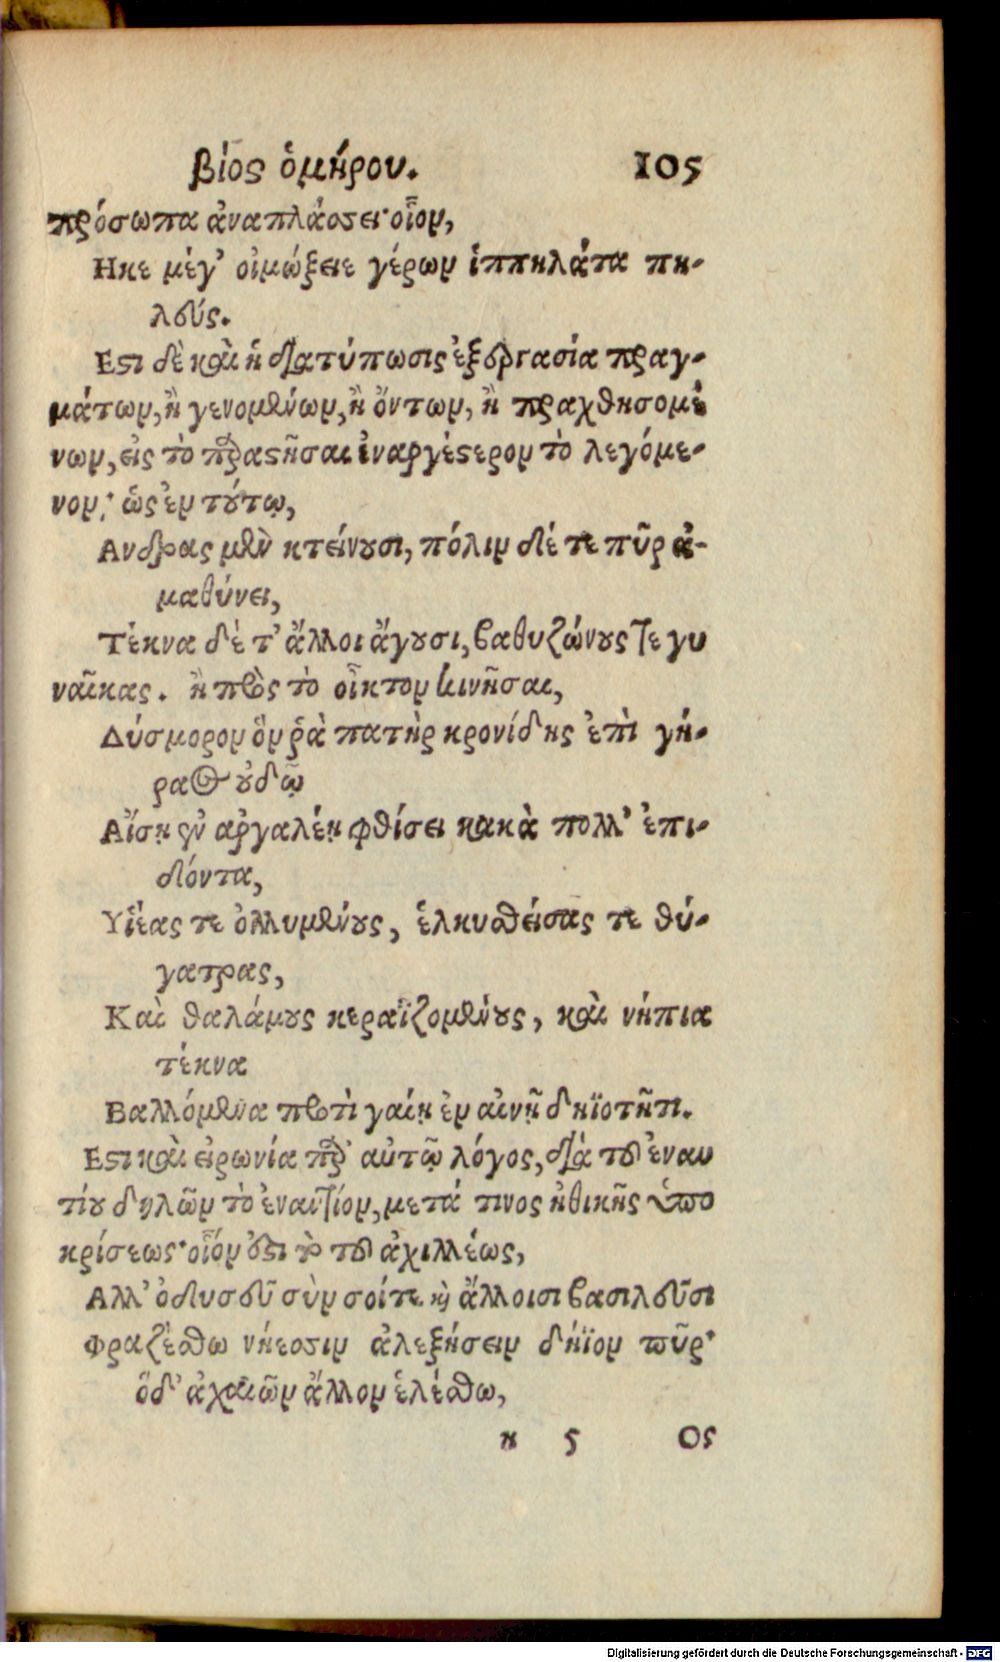 βίος ὁμήρου. 105
πρόσωπα ἀναπλάσσει· οἷον,
Ηκε μέγ' οἰμώξειε γέρων ἱππηλάτα πη-
λεύς.
Εστι δὲ καὶ ἡ διατύπωσις ἐξεργασία πραγ-
μάτων, ἢ γενομένων, ἢ ὄντων, ἢ πραχθησομέ
νων, εἰς τὸ παραστῆσαι ἐναργέστερον τὸ λεγόμε-
νον· ὡς ἐν τούτῳ,
Ανδρας μὲν κτείνουσι, πόλιν δέ τε πῦρ ἀ-
μαθύνει,
Τέκνα δέ τ' ἄλλοι ἄγουσι, βαθυζώνους τε γυ
ναῖκας. ἢ πρὸς τὸ οἶκτον κινῆσαι,
Δύσμορον ὅν ῥὰ πατὴρ κρονίδης ἐπὶ γή-
ραος οὐδῷ
Αἴσῃ ἐν ἀργαλέῃ φθίσει κακὰ πολλ' ἐπι-
δόντα,
Υἱέας τε ὀλλυμένους, ἑλκυσθείσας τε θύ-
γατρας,
Καὶ θαλάμους κεραϊζομένους, καὶ νήπια
τέκνα
Βαλλόμενα προτὶ γαίῃ ἐν αἰνῇ δηϊοτῆτι.
Εστι καὶ εἰρωνία παρ' αὐτῷ λόγος, διὰ τοῦ ἐναν
τίου δηλῶν τὸ ἐναντίον, μετά τινος ἠθικῆς ὑπο
κρίσεως· οἷόν ἐστι τὸ τοῦ ἀχιλλέως,
Αλλ' ὀδυσσεῦ σὺν σοί τε καὶ ἄλλοισι βασιλεῦσι
Φραζέσθω νήεσσιν ἀλεξήσειν δήϊον πῦρ·
ὅδ' ἀχαιῶν ἄλλον ἑλέσθω,
κ 5 ος
Digitalisierung gefördert durch die Deutsche Forschungsgemeinschaft - DFG